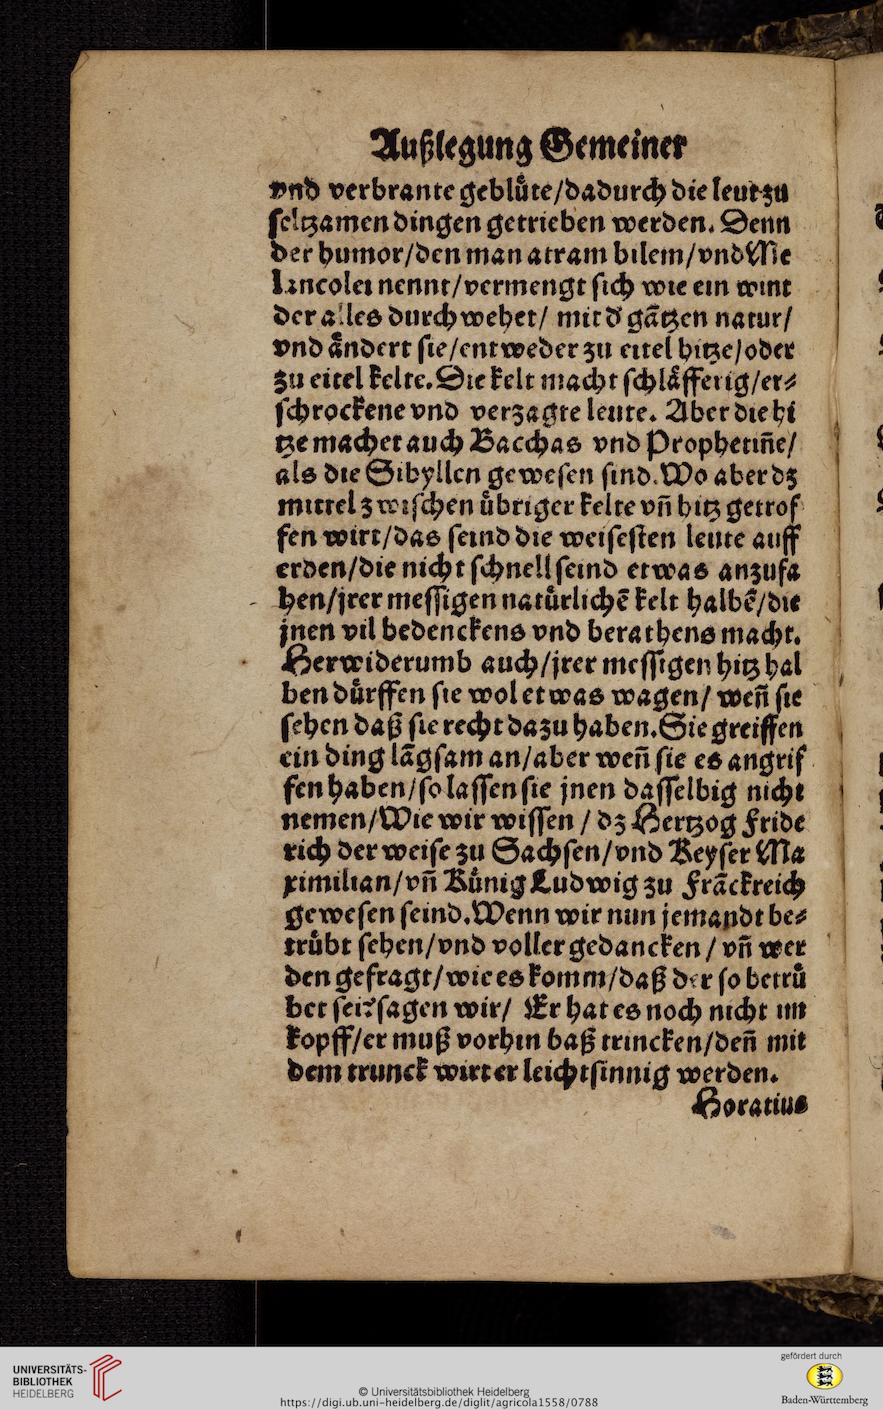 Außlegung Gemeiner
vnd verbrante geblůte/dadurch die leut zu
seltzamen dingen getrieben werden. Denn
der humor/den man atram bilem/vnd Me
lancolei nennt/vermengt sich wie ein wint
der alles durchwehet/ mit d' gãtzen natur/
vnd åndert sie/entweder zu eitel hitze/oder
zu eitel kelte. Die kelt macht schläfferig/er⸗
schrockene vnd verzagte leute. Aber die hi
tze machet auch Bacchas vnd Prophetiñe/
als die Sibyllen gewesen sind. Wo aber dz
mittel zwischen übriger kelte vñ hitz getrof
fen wirt/das seind die weisesten leute auff
erden/die nicht schnell seind etwas anzufa
hen/jrer messigen natürlichẽ kelt halbẽ/die
jnen vil bedenckens vnd berathens macht.
Herwiderumb auch/jrer messigen hitz hal
ben dürffen sie wol etwas wagen/ weñ sie
sehen daß sie recht dazu haben. Sie greiffen
ein ding lãgsam an/aber weñ sie es angrif
fen haben/so lassen sie jnen dasselbig nicht
nemen/Wie wir wissen / dz Hertzog Fride
rich der weise zu Sachsen/vnd Keyser Ma
ximilian/vñ Künig Ludwig zu Frãckreich
gewesen seind. Wenn wir nun jemandt be⸗
trůbt sehen/vnd voller gedancken / vñ wer
den gefragt/wie es komm/daß der so betrů
bet sei? sagen wir/ Er hat es noch nicht im
kopff/er muß vorhin baß trincken/deñ mit
dem trunck wirt er leichtsinnig werden.
Horatius
UNIVERSITÄTS-
BIBLIOTHEK
HEIDELBERG
© Universitätsbibliothek Heidelberg
https://digi.ub.uni-heidelberg.de/diglit/agricola1558/0788
gefördert durch
Baden-Württemberg